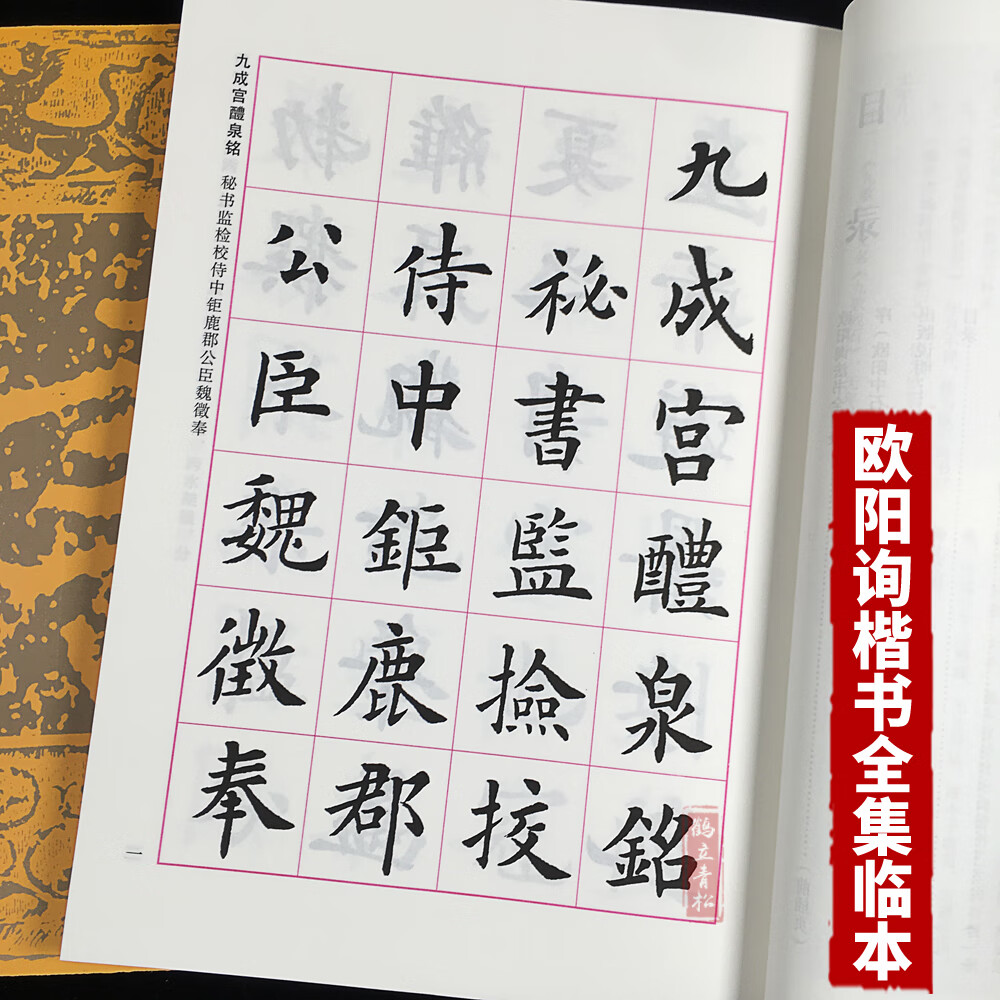 欧阳询楷书全集临本
九成宮醴泉銘
祕書監撿挍
侍中鉅鹿郡
公臣魏徵奉
九成宫醴泉铭 秘书监检校侍中钜鹿郡公臣魏徵奉
一
鹤立青松